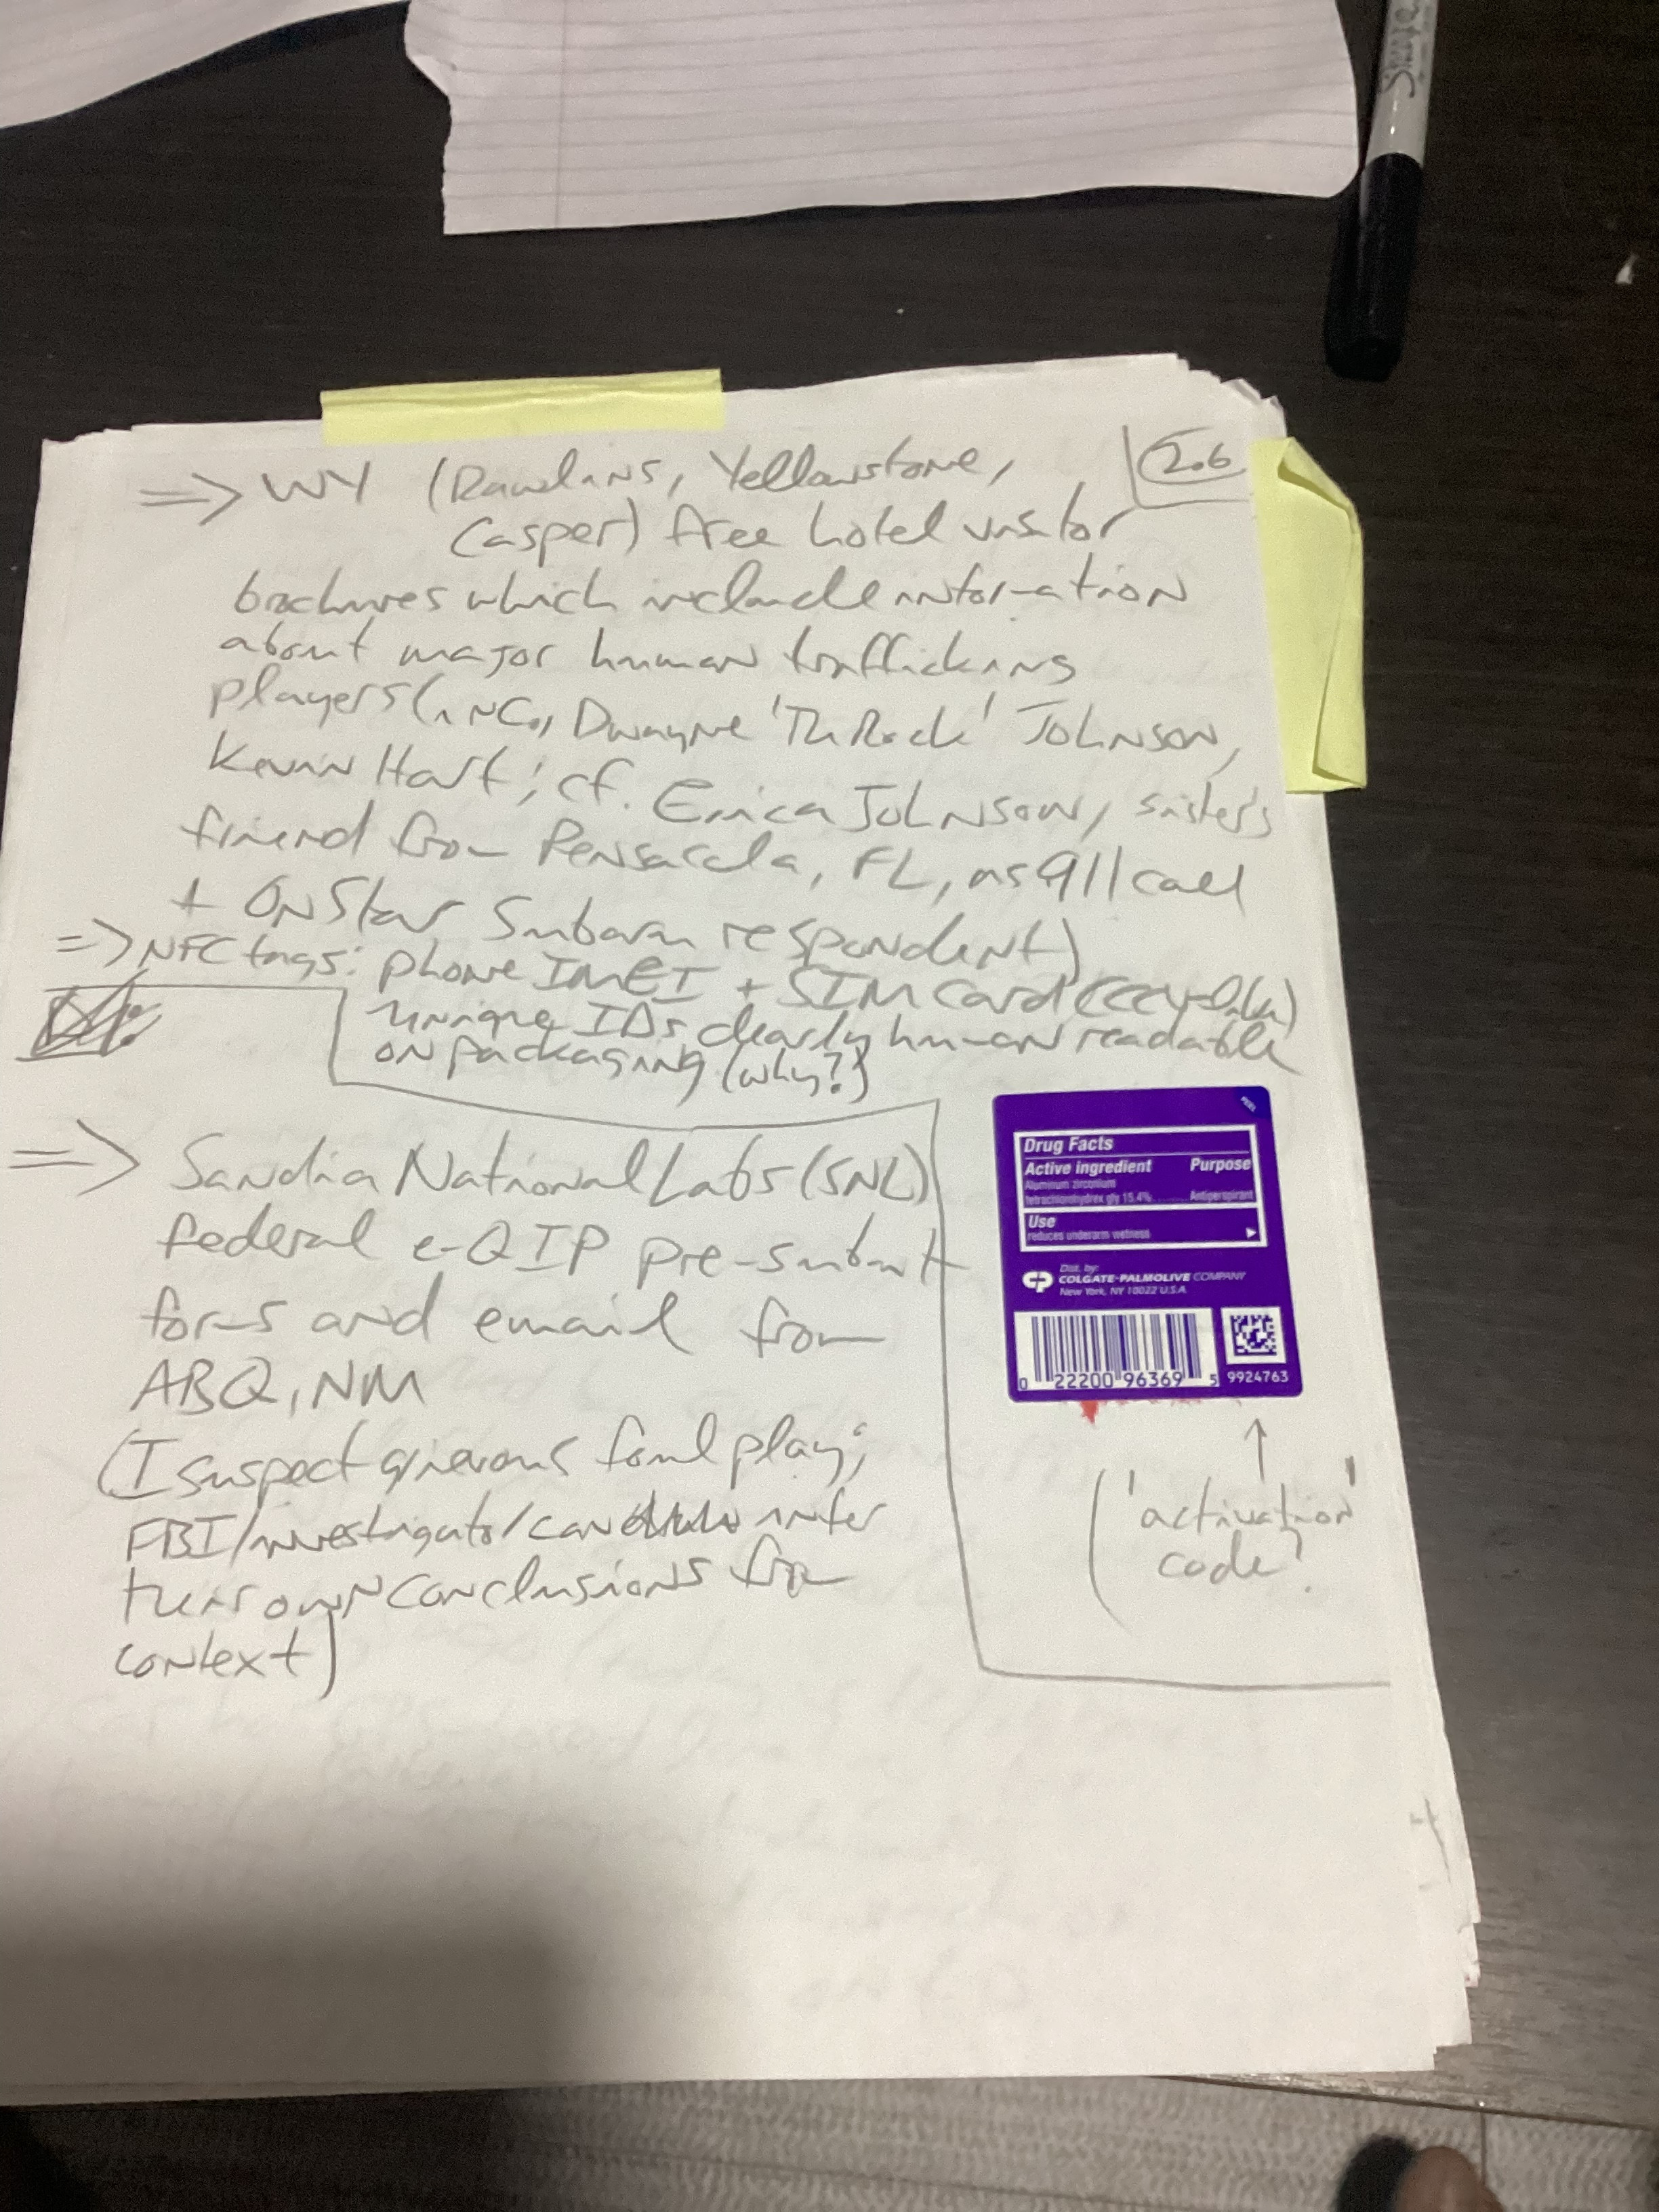 Sharpie
2.6
=> WY (Rawlins, Yellowstone,
Casper) free hotel visitor
brochures which include information
about major human trafficking
players (inc., Dwayne 'The Rock' Johnson,
Kevin Hart; cf. Erica Johnson, sister's
friend from Pensacola, FL, as 911 call
+ OnStar Subaru respondent)
=> NFC tags: phone IMEI + SIM card
unique IDs clearly human readable
on packaging (why?)
=> Sandia National Labs (SNL)
federal e-QIP pre-submit
forms and email from
ABQ, NM
(I suspect grievous foul play;
FBI/investigator can infer
their own conclusions from
context)
PEEL
Drug Facts
Active ingredient Purpose
Aluminum zirconium
tetrachlorohydrex gly 15.4%..........Antiperspirant
Use
reduces underarm wetness
Dist. by:
COLGATE-PALMOLIVE COMPANY
New York, NY 10022 U.S.A.
0 22200 96369 5
9924763
('activation'
code?